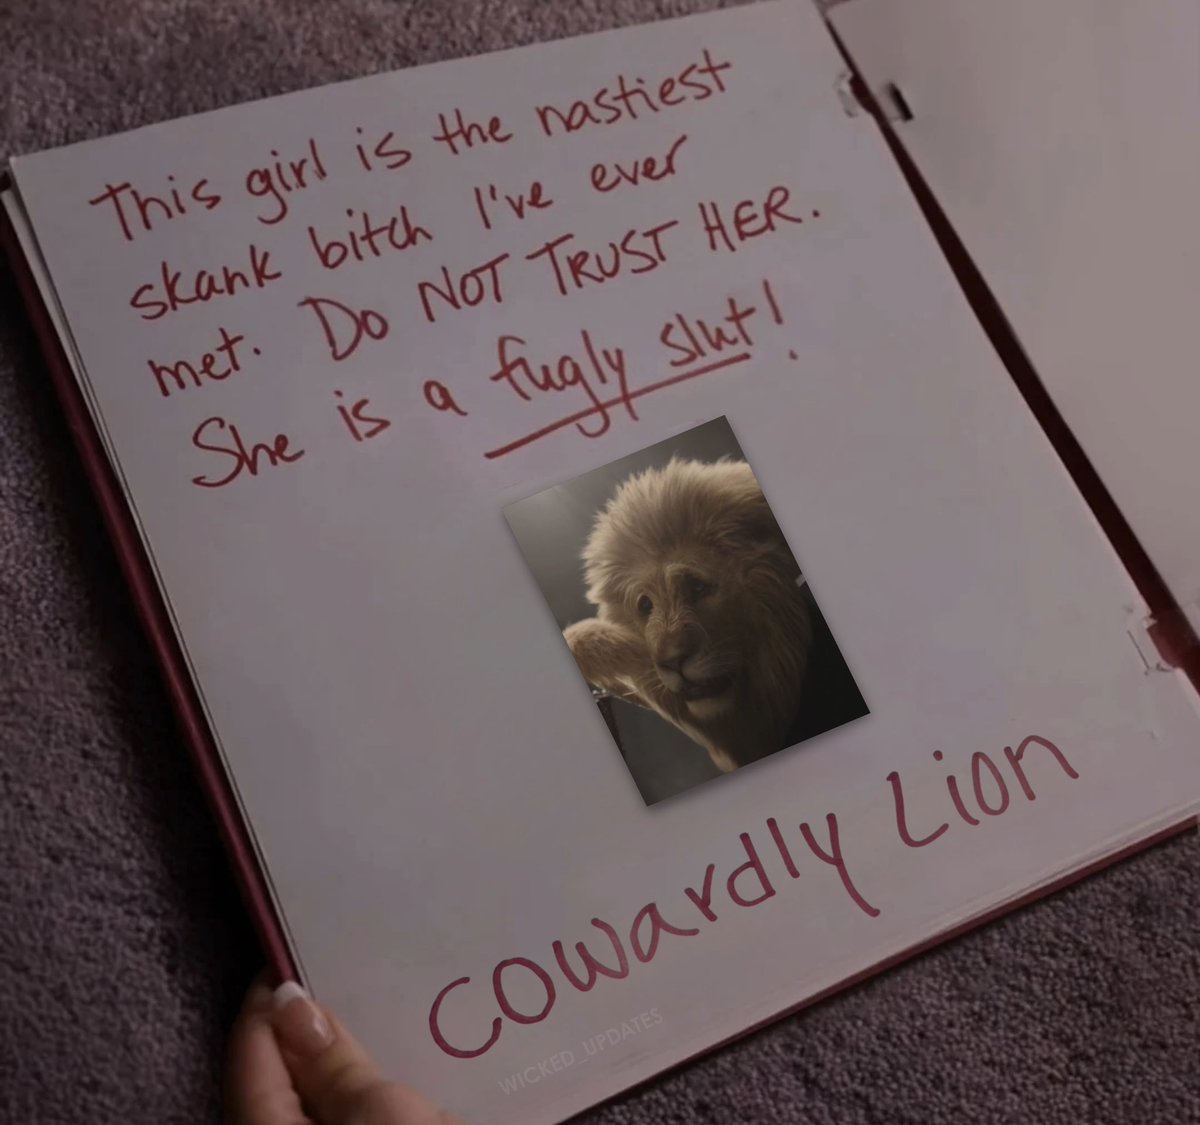 This girl is the nastiest
skank bitch I've ever
met. Do NOT TRUST HER.
She is a fugly slut!
Cowardly Lion
WICKED_UPDATES